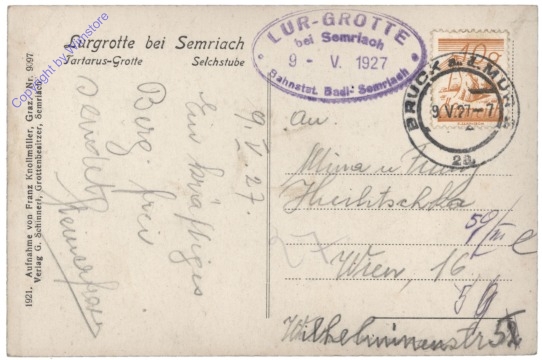 Lurgrotte bei Semriach
Tartarus-Grotte Selchstube
1921. Aufnahme von Franz Knollmüller, Graz. Nr. 9097
Verlag G. Schinnerl, Grottenbesitzer, Semriach.
Copyright by Wunstore
LUR-GROTTE
bei Semriach
9 - V. 1927
Bahnstat. Badl-Semriach
BRUCK a. d. MUR
9.V.27-7
2a
10g
9.V.27.
Ein kräftiges
Berg frei
sendet
An.
Mima u.
Wien, 16
Wilhelminenstr 52
59/III
59